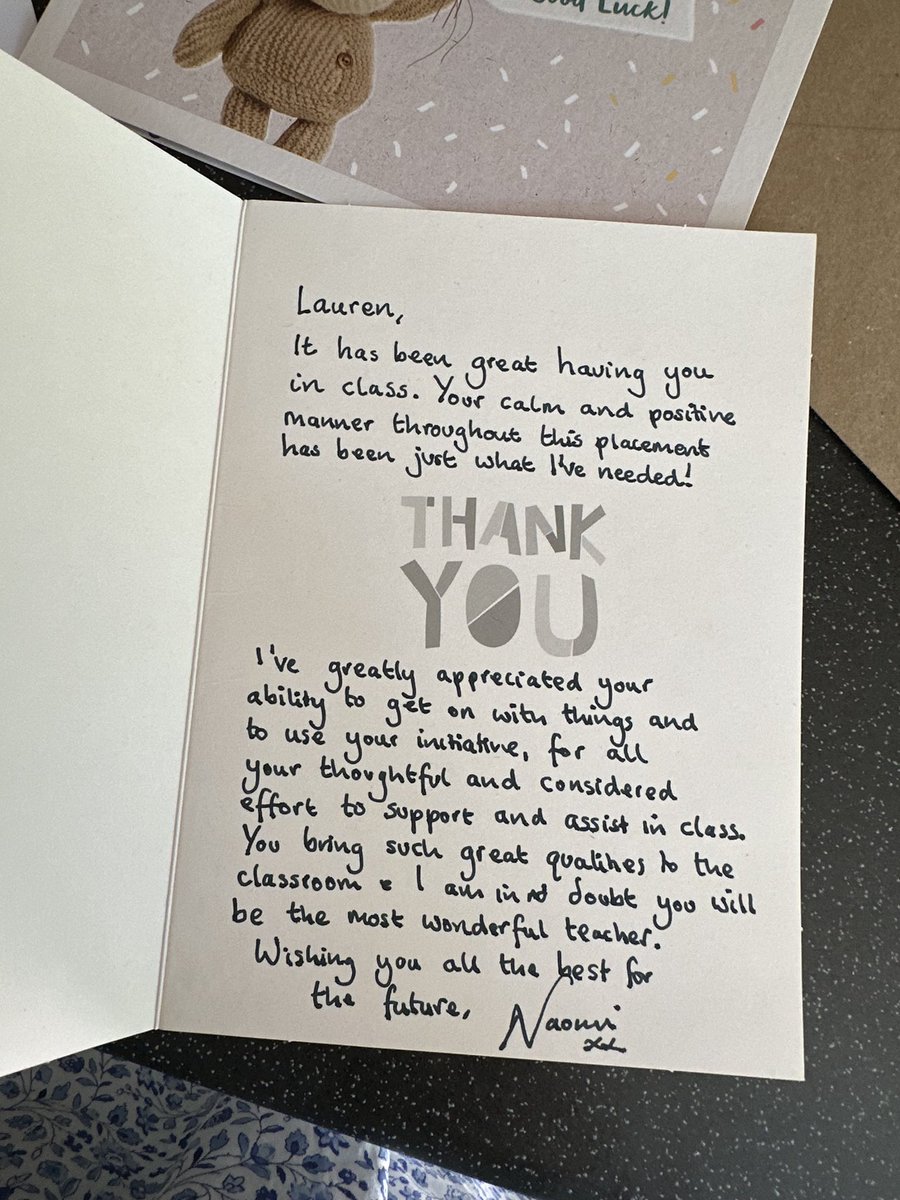 Good Luck!
Lauren,
It has been great having you
in class. Your calm and positive
manner throughout this placement
has been just what I've needed!
THANK
YOU
I've greatly appreciated your
ability to get on with things and
to use your initiative, for all
your thoughtful and considered
effort to support and assist in class.
You bring such great qualities to the
classroom & I am in no doubt you will
be the most wonderful teacher.
Wishing you all the best for
the future,
Naomi